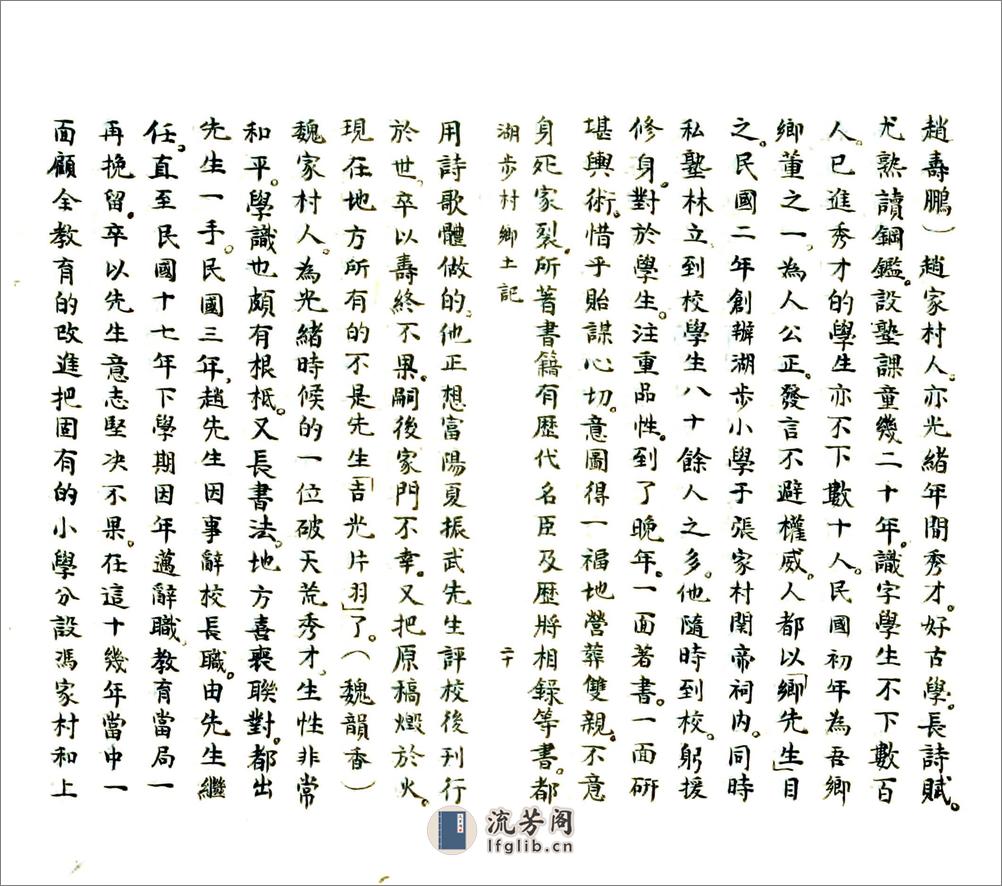 趙壽鵬）趙家村人。亦光緒年間秀才。好古學。長詩賦。
尤熟讀鋼鑑。設塾課童幾二十年。識字學生不下數百
人。已進秀才的學生亦不下數十人。民國初年為吾鄉
鄉董之一。為人公正。發言不避權威。人都以「鄉先生」目
之。民國二年創辦湖步小學于張家村関帝祠內。同時
私塾林立。到校學生八十餘人之多。他隨時到校。躬援
修身。對於學生。注重品性。到了晚年。一面著書。一面研
堪輿術。惜乎貽謀心切。意圖得一福地營葬雙親。不意
身死家裂。所著書籍有歴代名臣及歴將相錄等書。都
湖步村鄉土記 二十
用詩歌體做的。他正想富陽夏振武先生評校後刋行
於世。卒以壽終不果。嗣後家門不幸。又把原稿燬於火。
現在地方所有的不是先生「吉光片羽」了。（魏韻香）
魏家村人。為光緒時候的一位破天荒秀才。生性非常
和平。學識也頗有根柢。又長書法。地方喜喪聯對。都出
先生一手。民國三年，趙先生因事辭校長職。由先生繼
任。直至民國十七年下學期因年邁辭職。教育當局一
再挽留。卒以先生意志堅决不果。在這十幾年當中一
面顧全教育的改進把固有的小學分設馮家村和上
流芳阁
lfglib.cn